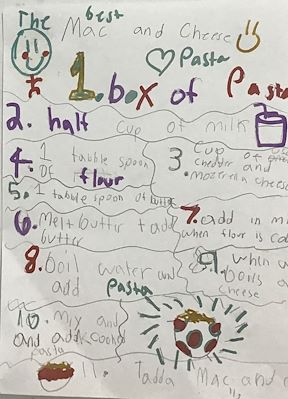 The best
Mac and Cheese
Pasta
1. box of Pasta
2. half cup of milk
3. Cup of
chedder and
cheese
4. 1 tabble spoon
of flour
5. 1 tabble spoon of
6. Melt butter + add
butter
7. add in
when flour is
8. boil water and
add pasta
9. when
boils
cheese
10. Mix and
and add
pasta
11. Tadda Mac and